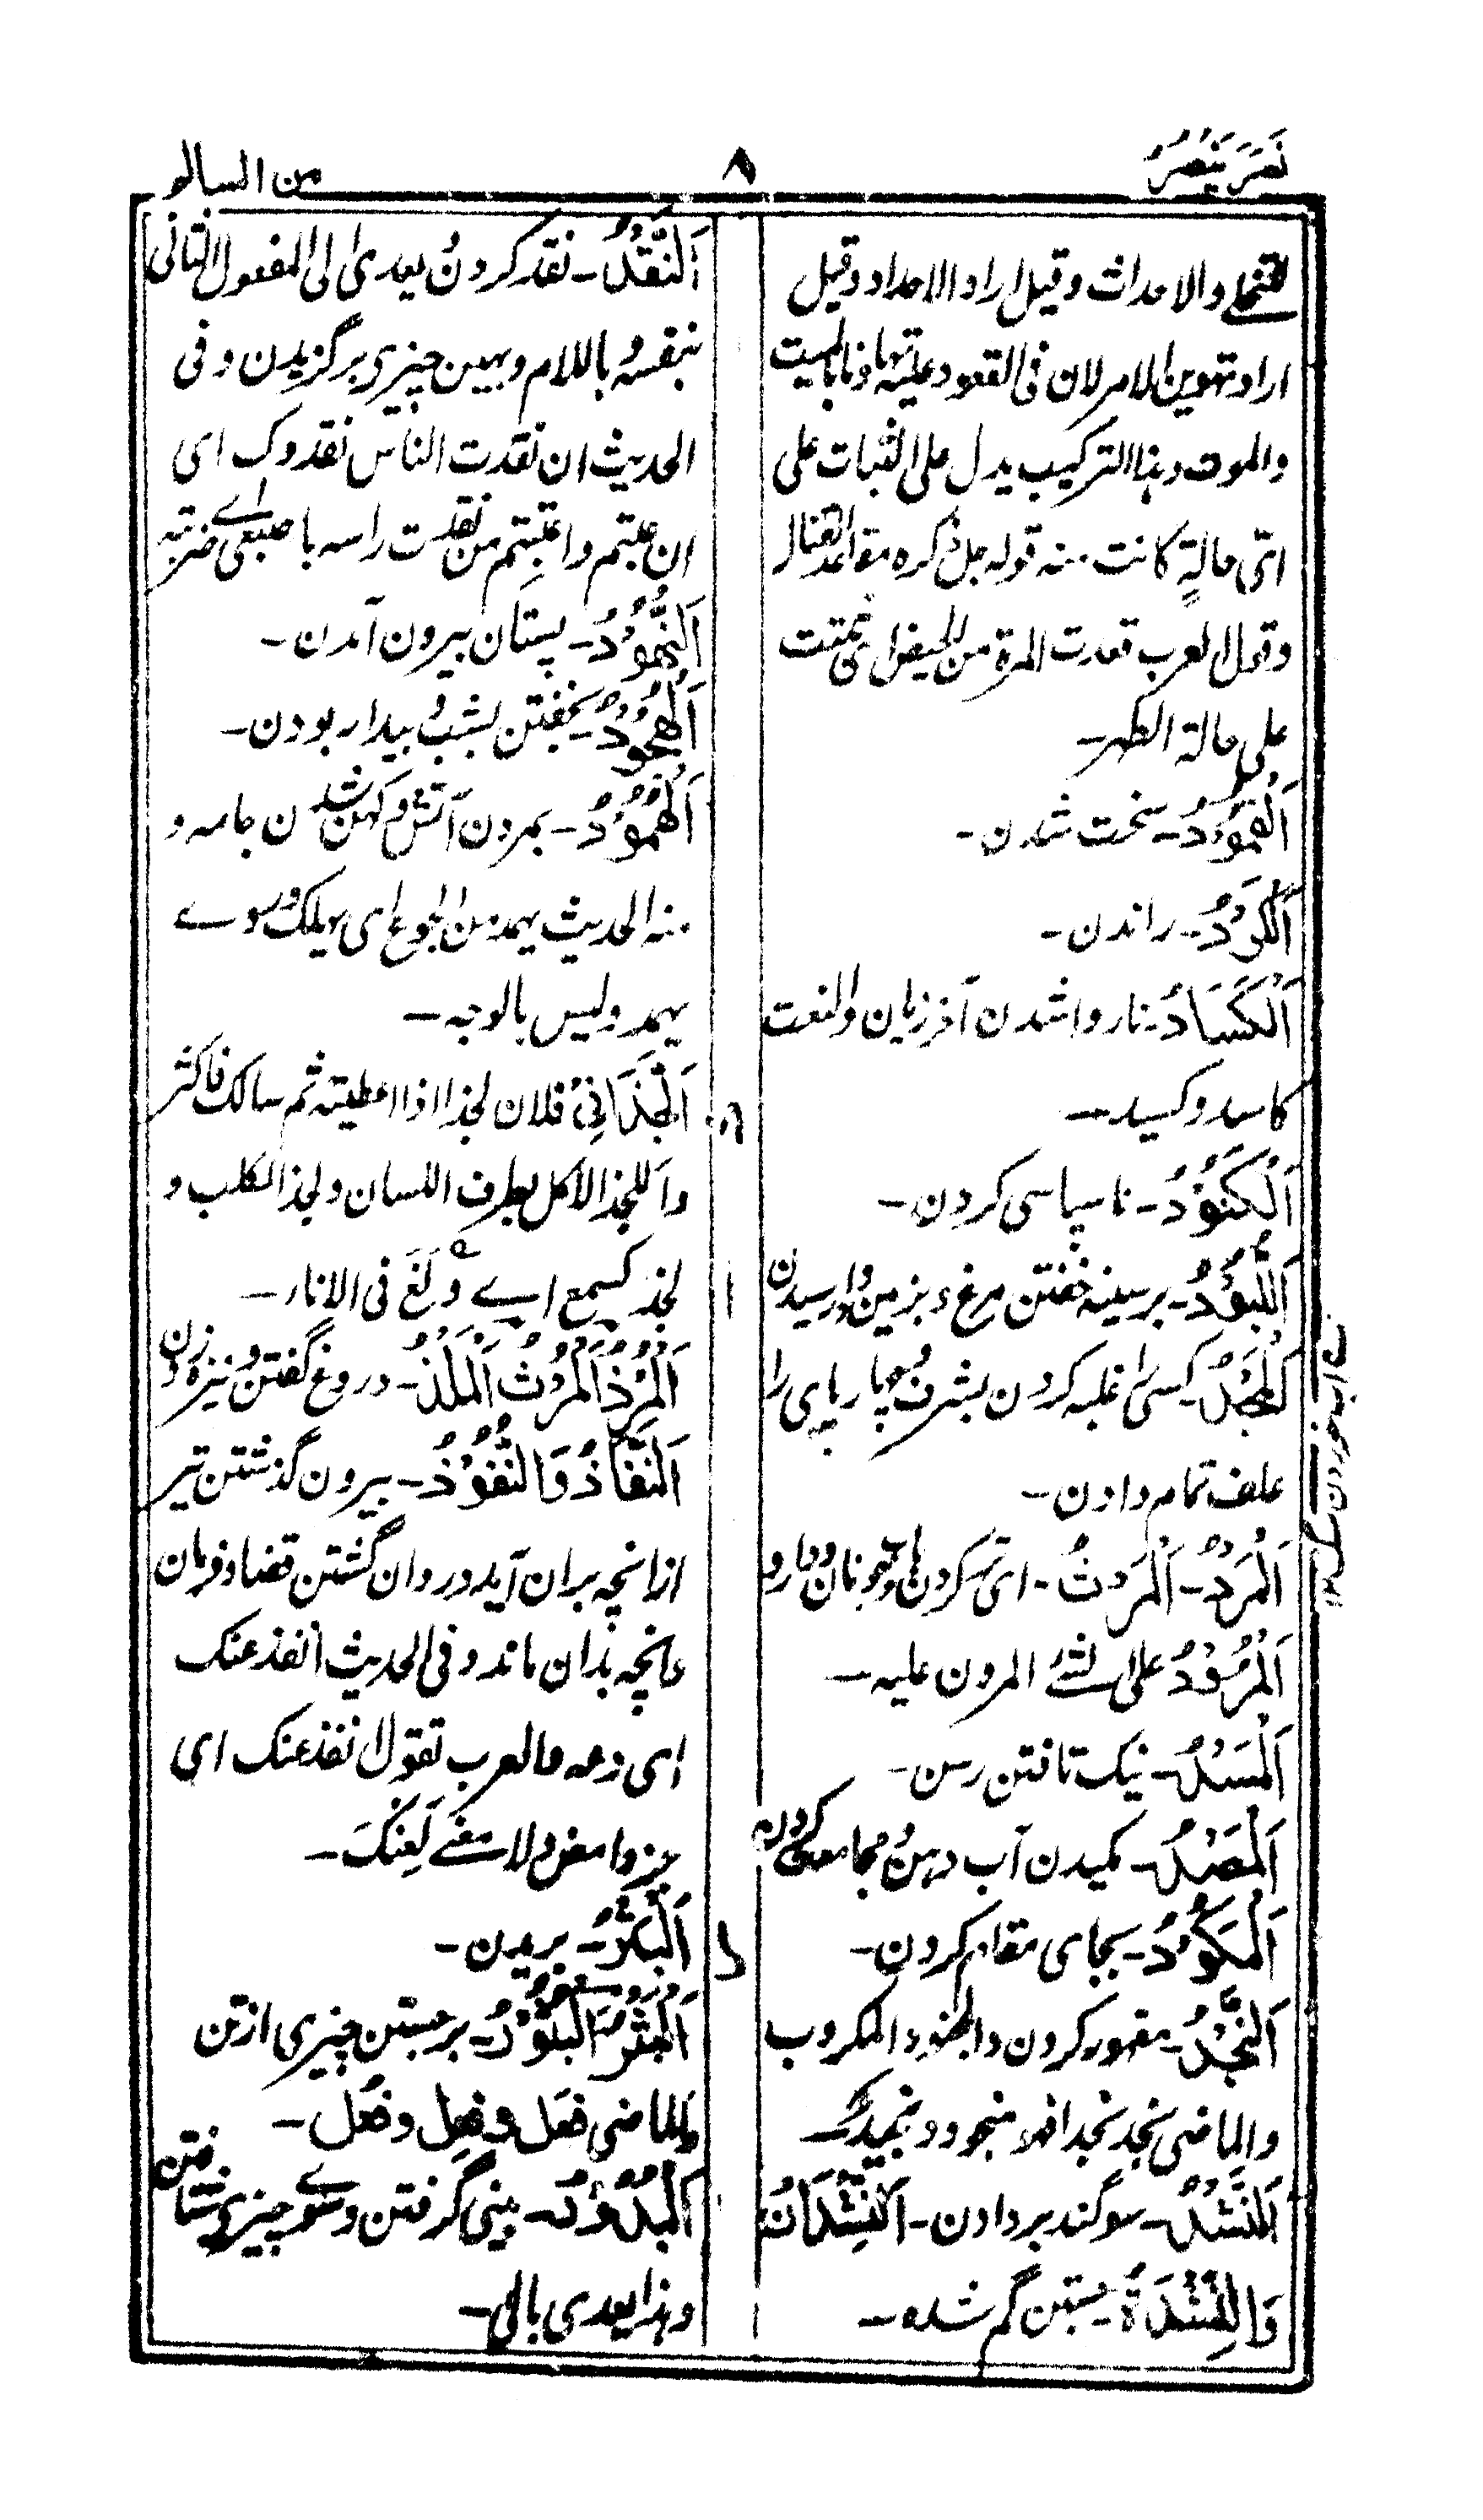 نَصَرَ يَنْصُرُ
٨
من السالم
للتخلي والاحداث وقیل اراد الاحداد وقیل
اراد تهوین الامر لان فی القعود علیه تهاونا بالمیت
والموت وہذا الترکیب یدل علی الثبات علی
ای حالةٍ کانت منه قوله جل ذکره مقاعد للقتال
وقول العرب قعدت المرة من الحیض ای ثمتت
علی حالة الطهر۔
اَلْقُمُوْدُ۔ سخت شدن۔
اَلْکَرْدُ۔ راندن۔
اَلْکَسَادُ۔ ناروا شدن آخرزیان والنعت
کاسد وکسید۔
اَلْکُنُوْدُ۔ ناسپاسی کردن۔
اَللُّبُوْدُ۔ برسینه خفتن مرغ وبزمین وادوسیدن
اَلْمَجْدُ۔ کسی را غلبه کردن بشرف وچارپای را
علف تمام دادن۔
اَلْمَرْدُ۔ اَلْمَرْثُ۔ ای تر کردن نان ودارو
اَلْمُرُوْدُ علی الشئ المرون علیه۔
اَلْمَسْدُ۔ نیک تافتن رسن۔
اَلْمَصْدُ۔ مکیدن آب دهن ومجامعت کردن
اَلْمُکُوْدُ۔ بجای مقام کردن۔
اَلنَّجْدُ۔ مقهور کردن والمنجود المکروب
والماضی نجد نجدا فهو منجود ونجید۔
اَلنَّشْدُ۔ سوگند بردادن۔ اَلنِّشْدَانُ
وَالنِّشْدَةُ۔ جستن گم شده۔
اَلنَّقْدُ۔ نقد کردن یعدی الی المفعول الثانی
بنفسه وباللام وبہین چیزی برگزیدن وفی
الحدیث ان نقدت الناس نقدوک ای
ان عبتهم واغتبتهم من نقدت راسه باصبعی ای ضربته
اَلنُّهُوْدُ۔ پستان بیرون آمدن۔
اَلْهُجُوْدُ۔ بخفتن بشب وبیدار بودن۔
اَلْهُمُوْدُ۔ بمردن آتش وکهن شدن جامه و
منه الحدیث یهمد من الجوع ای یهلک وروے
یهمد ولیس بالوجه۔
ذ
لجذنی فلان لجذا اذا اعطیته ثم سالک فاکثر
واللجذ الاکل بطرف اللسان ولجذ الکلب و
لجذ کسمع اے وَلَغَ فی الاناء۔
اَلْمَرْذُ اَلْمَرْثُ اَلْمَلْذُ۔ دروغ گفتن ونیزه زدن
اَلنَّفَاذُ وَالنُّفُوْذُ۔ بیرون گذشتن تیر
ازانچه بران آید وروان گشتن قضا وفرمان
وانچه بدان ماند وفی الحدیث انفذ عنک
ای دعه والعرب تقول انفذ عنک ای
جز وامض ولا معنے لِعَنْکَ۔
ر
اَلْبَتْرُ۔ بریدن۔
اَلْبَثْرُ وَالْبُثُوْرُ۔ برجستن چیزی از تن
والماضی فعَل وفعِل وفعُل۔
اَلْبُدُوْرُ۔ پیشی گرفتن وسوے چیزی شتافتن
وهذا یعدی بالی۔